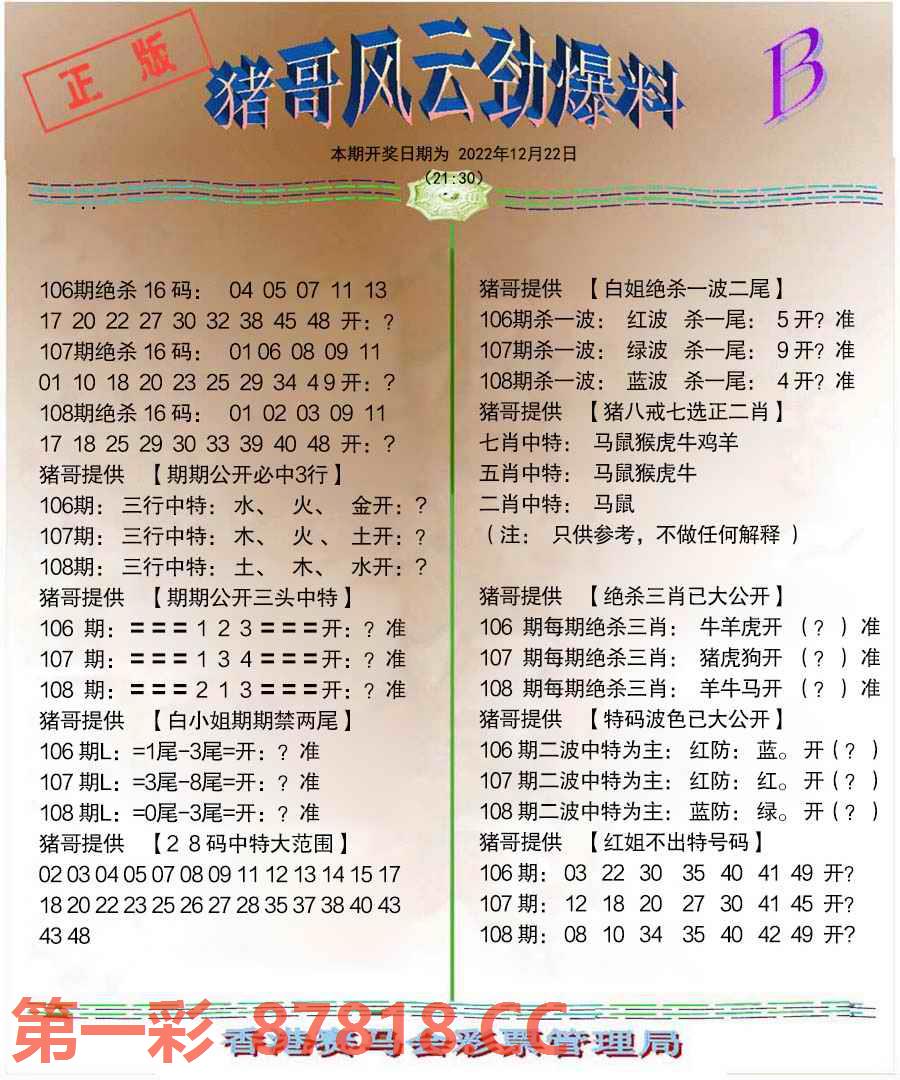 正版
猪哥风云劲爆料
B
本期开奖日期为 2022年12月22日
(21:30)
106期绝杀16码： 04 05 07 11 13
17 20 22 27 30 32 38 45 48 开：？
107期绝杀16码： 01 06 08 09 11
01 10 18 20 23 25 29 34 49开：？
108期绝杀16码： 01 02 03 09 11
17 18 25 29 30 33 39 40 48 开：？
猪哥提供 【期期公开必中3行】
106期： 三行中特：水、 火、 金开：？
107期： 三行中特：木、 火、 土开：？
108期： 三行中特：土、 木、 水开：？
猪哥提供 【期期公开三头中特】
106 期：〓〓〓１２３〓〓〓开：？准
107 期：〓〓〓１３４〓〓〓开：？准
108 期：〓〓〓２１３〓〓〓开：？准
猪哥提供 【白小姐期期禁两尾】
106 期L：=1尾-3尾=开：？准
107 期L：=3尾-8尾=开：？准
108 期L：=0尾-3尾=开：？准
猪哥提供 【２８码中特大范围】
02 03 04 05 07 08 09 11 12 13 14 15 17
18 20 22 23 25 26 27 28 35 37 38 40 43
43 48
猪哥提供 【白姐绝杀一波二尾】
106期杀一波： 红波 杀一尾： 5开？准
107期杀一波： 绿波 杀一尾： 9开？准
108期杀一波： 蓝波 杀一尾： 4开？准
猪哥提供 【猪八戒七选正二肖】
七肖中特： 马鼠猴虎牛鸡羊
五肖中特： 马鼠猴虎牛
二肖中特： 马鼠
（注： 只供参考，不做任何解释）
猪哥提供 【绝杀三肖已大公开】
106 期每期绝杀三肖： 牛羊虎开 （？）准
107 期每期绝杀三肖： 猪虎狗开 （？）准
108 期每期绝杀三肖： 羊牛马开 （？）准
猪哥提供 【特码波色已大公开】
106 期二波中特为主：红防：蓝。开（？）
107 期二波中特为主：红防：红。开（？）
108 期二波中特为主：蓝防：绿。开（？）
猪哥提供 【红姐不出特号码】
106 期： 03 22 30 35 40 41 49 开？
107 期： 12 18 20 27 30 41 45 开？
108 期： 08 10 34 35 40 42 49 开？
第一彩 87818.CC
香港赛马会彩票管理局